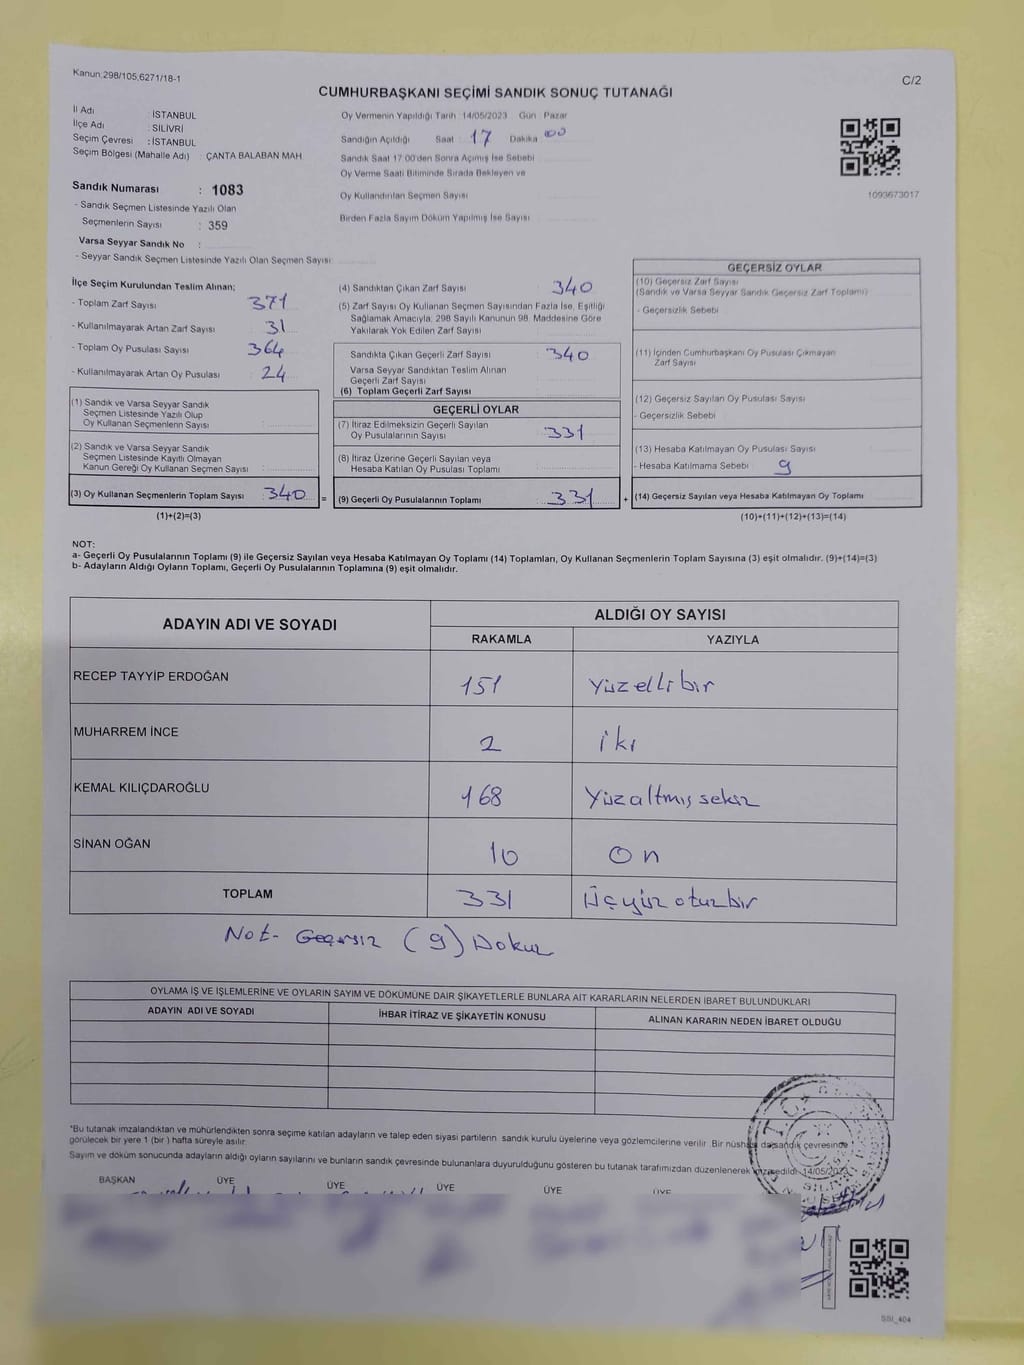 Kanun:298/105,6271/18-1
C/2
CUMHURBAŞKANI SEÇİMİ SANDIK SONUÇ TUTANAĞI
İl Adı : İSTANBUL
İlçe Adı : SİLİVRİ
Seçim Çevresi : İSTANBUL
Seçim Bölgesi (Mahalle Adı) : ÇANTA BALABAN MAH.
Sandık Numarası : 1083
- Sandık Seçmen Listesinde Yazılı Olan
Seçmenlerin Sayısı : 359
Varsa Seyyar Sandık No :
- Seyyar Sandık Seçmen Listesinde Yazılı Olan Seçmen Sayısı:
Oy Vermenin Yapıldığı Tarih :14/05/2023 Gün : Pazar
Sandığın Açıldığı Saat : 17 Dakika : 00
Sandık Saat 17:00'den Sonra Açımış İse Sebebi
Oy Verme Saati Bitiminde Sırada Bekleyen ve
Oy Kullandırılan Seçmen Sayısı
Birden Fazla Sayım Döküm Yapılmış İse Sayısı
1093673017
İlçe Seçim Kurulundan Teslim Alınan;
- Toplam Zarf Sayısı : 371
- Kullanılmayarak Artan Zarf Sayısı : 31
- Toplam Oy Pusulası Sayısı : 364
- Kullanılmayarak Artan Oy Pusulası : 24
(1) Sandık ve Varsa Seyyar Sandık
Seçmen Listesinde Yazılı Olup
Oy Kullanan Seçmenlerin Sayısı :
(2) Sandık ve Varsa Seyyar Sandık
Seçmen Listesinde Kayıtlı Olmayan
Kanun Gereği Oy Kullanan Seçmen Sayısı :
(3) Oy Kullanan Seçmenlerin Toplam Sayısı : 340 =
(1)+(2)=(3)
(4) Sandıktan Çıkan Zarf Sayısı : 340
(5) Zarf Sayısı Oy Kullanan Seçmen Sayısından Fazla İse, Eşitliği
Sağlamak Amacıyla; 298 Sayılı Kanunun 98. Maddesine Göre
Yakılarak Yok Edilen Zarf Sayısı :
Sandıkta Çıkan Geçerli Zarf Sayısı : 340
Varsa Seyyar Sandıktan Teslim Alınan
Geçerli Zarf Sayısı :
(6) Toplam Geçerli Zarf Sayısı :
GEÇERLİ OYLAR
(7) İtiraz Edilmeksizin Geçerli Sayılan
Oy Pusulalarının Sayısı : 331
(8) İtiraz Üzerine Geçerli Sayılan veya
Hesaba Katılan Oy Pusulası Toplamı :
(9) Geçerli Oy Pusulalarının Toplamı : 331 +
GEÇERSİZ OYLAR
(10) Geçersiz Zarf Sayısı
(Sandık ve Varsa Seyyar Sandık Geçersiz Zarf Toplamı)
- Geçersizlik Sebebi
(11) İçinden Cumhurbaşkanı Oy Pusulası Çıkmayan
Zarf Sayısı
(12) Geçersiz Sayılan Oy Pusulası Sayısı
- Geçersizlik Sebebi
(13) Hesaba Katılmayan Oy Pusulası Sayısı
- Hesaba Katılmama Sebebi 9
(14) Geçersiz Sayılan veya Hesaba Katılmayan Oy Toplamı
(10)+(11)+(12)+(13)=(14)
NOT:
a- Geçerli Oy Pusulalarının Toplamı (9) ile Geçersiz Sayılan veya Hesaba Katılmayan Oy Toplamı (14) Toplamları, Oy Kullanan Seçmenlerin Toplam Sayısına (3) eşit olmalıdır. (9)+(14)=(3)
b- Adayların Aldığı Oyların Toplamı, Geçerli Oy Pusulalarının Toplamına (9) eşit olmalıdır.
ADAYIN ADI VE SOYADI ALDIĞI OY SAYISI
RAKAMLA YAZIYLA
RECEP TAYYİP ERDOĞAN 151 Yüzellibir
MUHARREM İNCE 2 iki
KEMAL KILIÇDAROĞLU 168 Yüzaltmışsekiz
SİNAN OĞAN 10 On
TOPLAM 331 Üçyüzotuzbir
Not- Geçersiz (9) Dokuz
OYLAMA İŞ VE İŞLEMLERİNE VE OYLARIN SAYIM VE DÖKÜMÜNE DAİR ŞİKAYETLERLE BUNLARA AİT KARARLARIN NELERDEN İBARET BULUNDUKLARI
ADAYIN ADI VE SOYADI İHBAR İTİRAZ VE ŞİKAYETİN KONUSU ALINAN KARARIN NEDEN İBARET OLDUĞU
*Bu tutanak imzalandıktan ve mühürlendikten sonra seçime katılan adayların ve talep eden siyasi partilerin sandık kurulu üyelerine veya gözlemcilerine verilir. Bir nüshası da sandık çevresinde
görülecek bir yere 1 (bir) hafta süreyle asılır.
Sayım ve döküm sonucunda adayların aldığı oyların sayılarını ve bunların sandık çevresinde bulunanlara duyurulduğunu gösteren bu tutanak tarafımızdan düzenlenerek imza edildi. 14/05/2023
BAŞKAN ÜYE ÜYE ÜYE ÜYE ÜYE
T.C.
SİLİVRİ
SSI_404